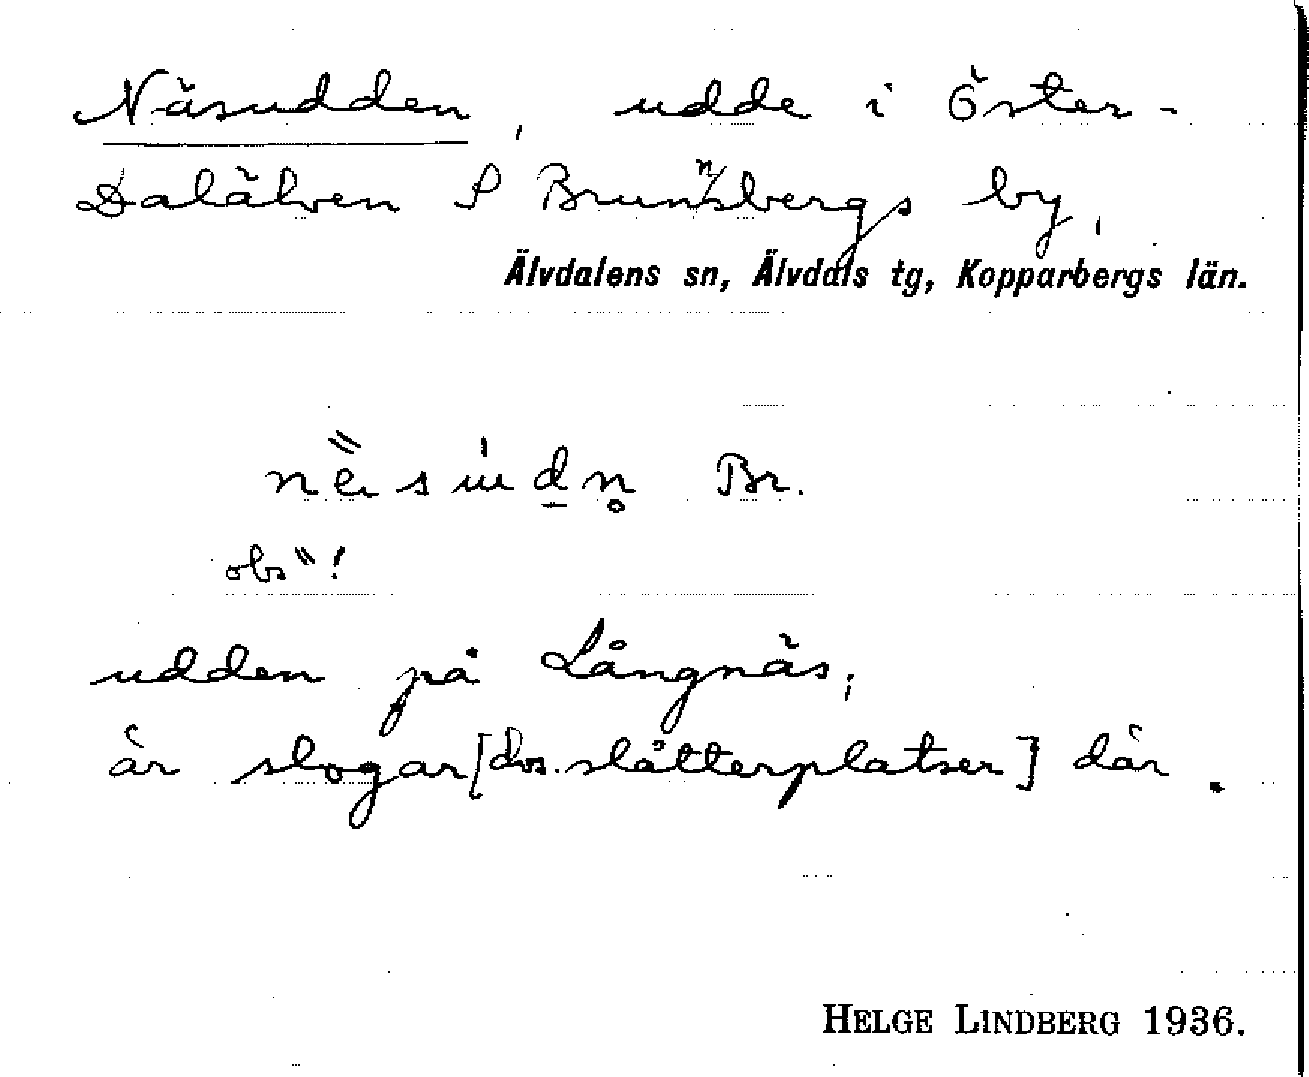 Näsudden, udde i Öster-
Dalälven S Brunnsbergs by,
Älvdalens sn, Älvdals tg, Kopparbergs län.
Br.
obs "!
udden på Långnäs;
är slogar [dvs. slåtterplatser] där.
HELGE LINDBERG 1936.